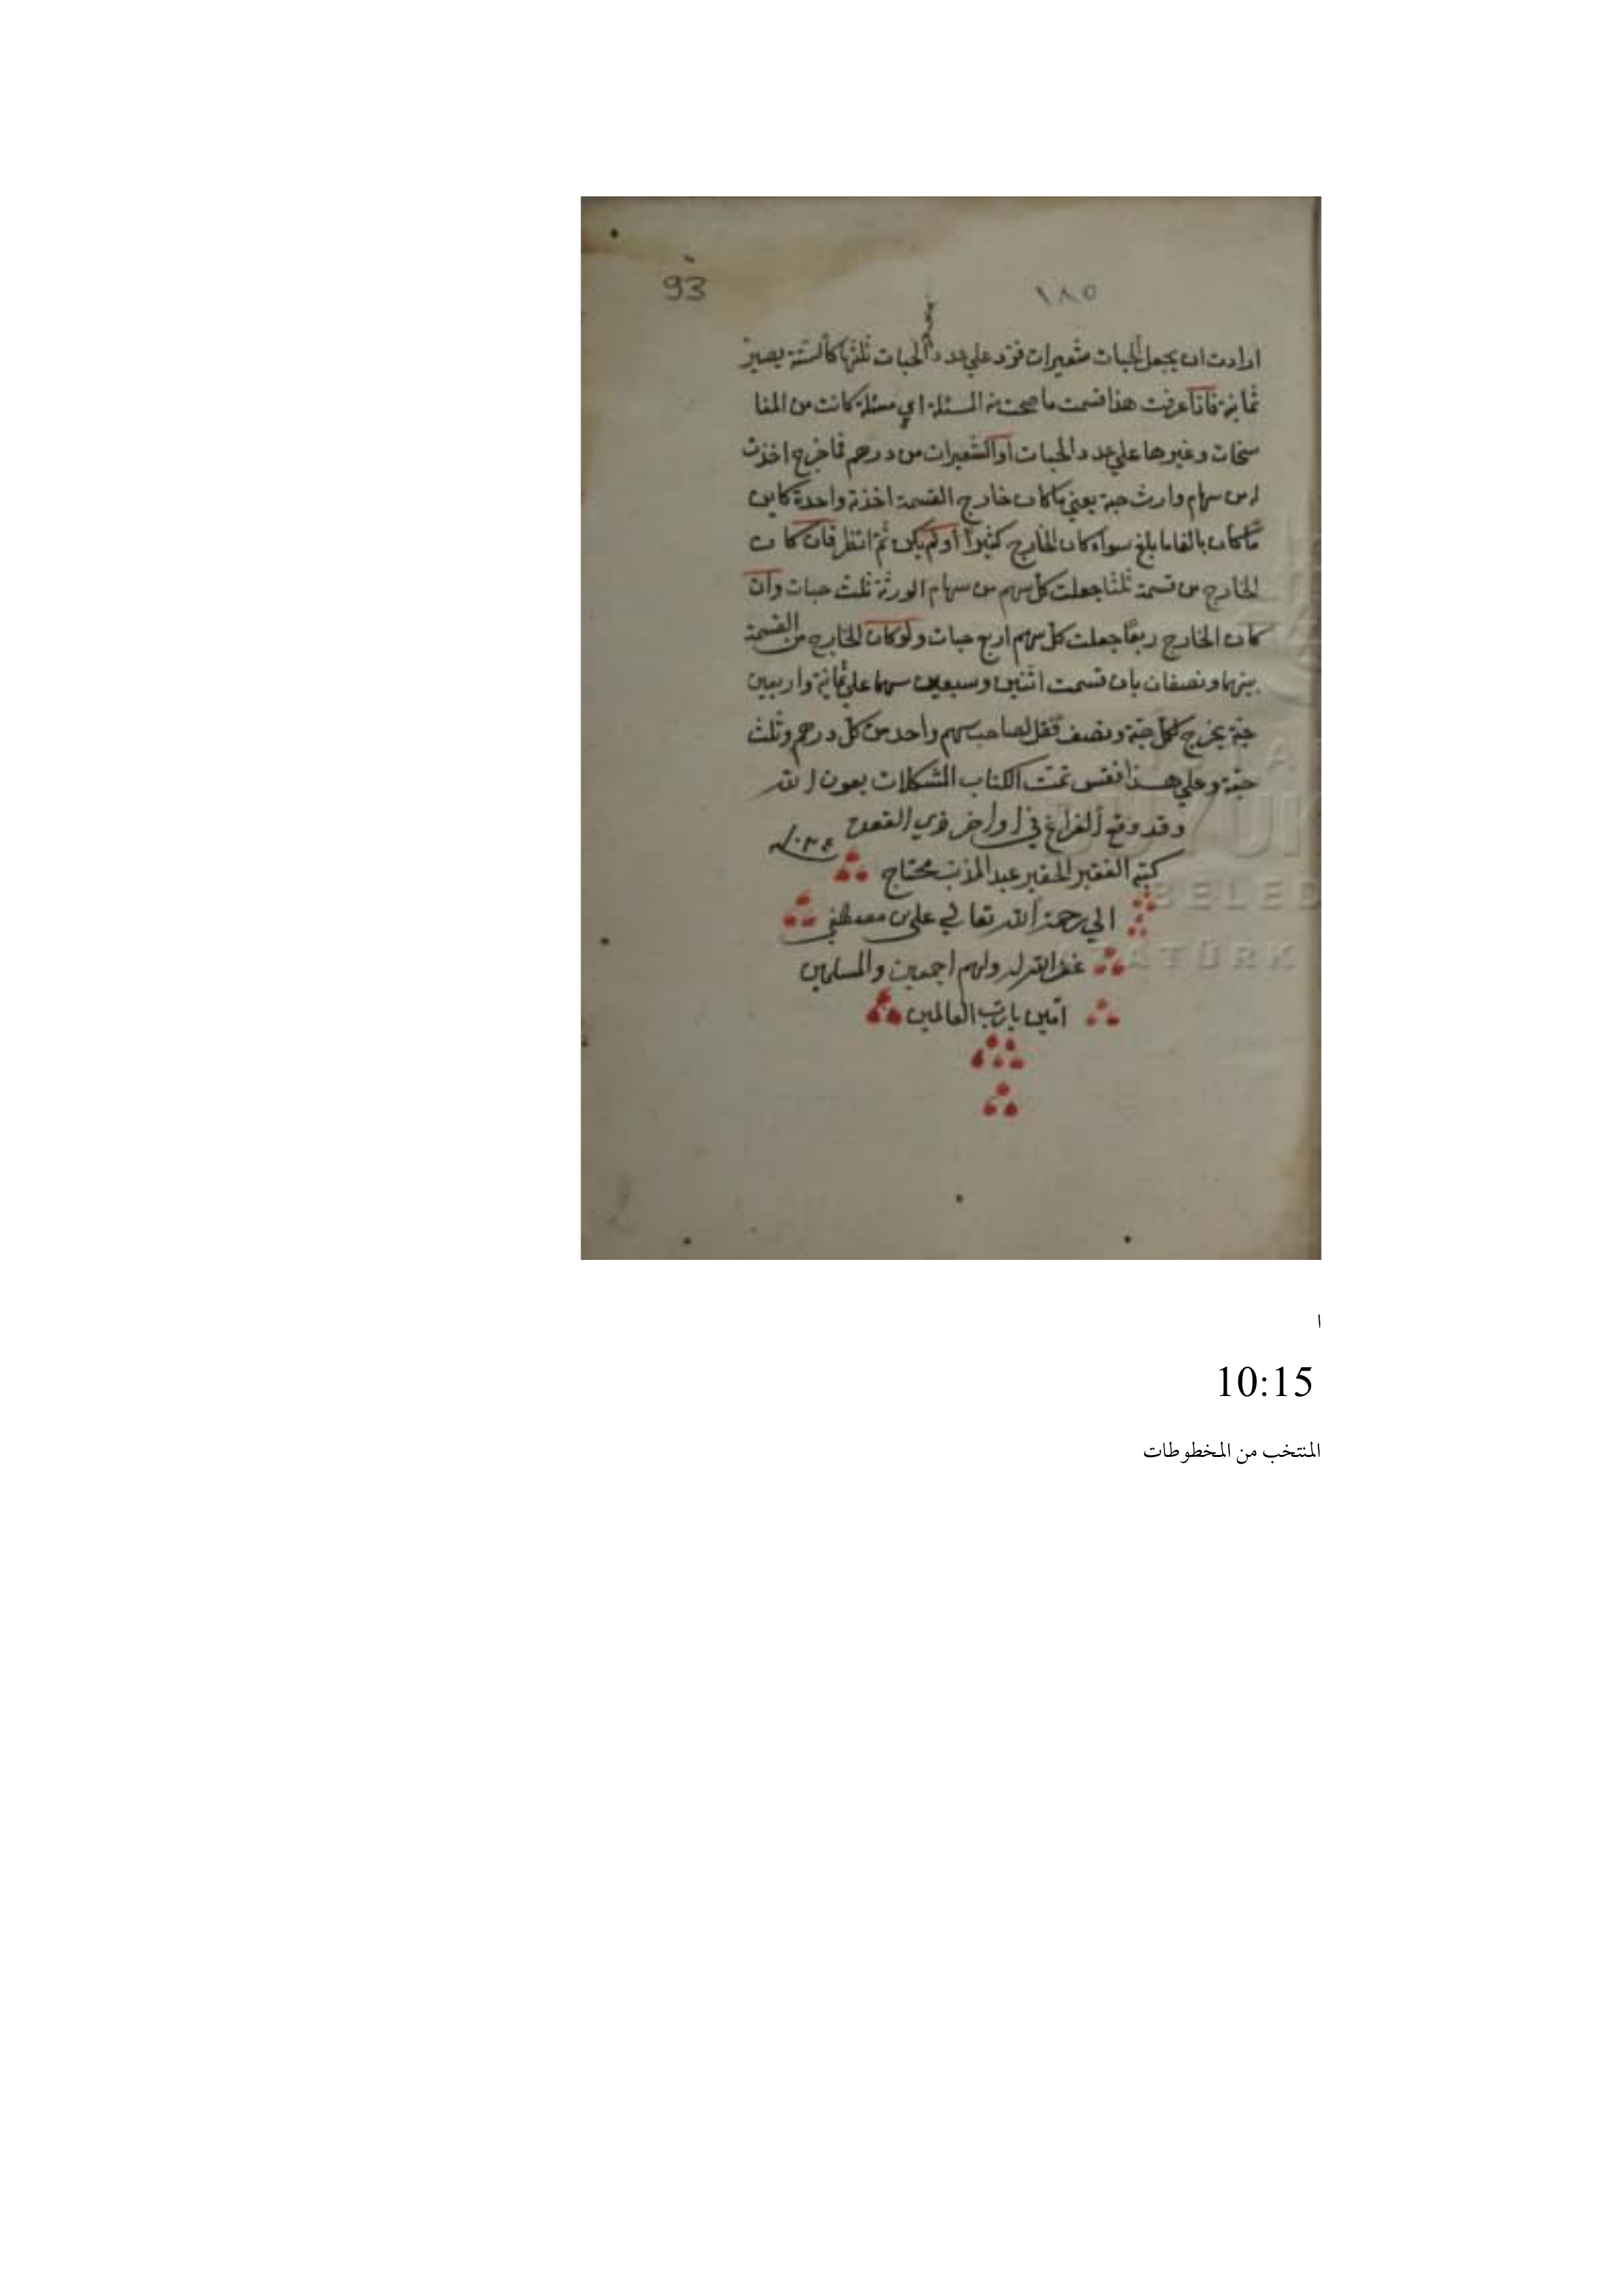 93
١٨٥
اردت ان يجعل الحبات شعيرات فزد علي عدد الحبات ثلثها كالستة يصير
ثمانية فاذا عرفت هذا قسمت ما صحت منه المسئلة اي مسئلة كانت من المنا
سخات وغيرها علي عدد الحبات او الشعيرات من درهم فما خرج اخذت
من سهام وارث حبة يعني ما كان خارج القسمة اخذته واحدة كاين
ما كان بالغا ما بلغ سواء كان الخارج كثيرا او لم يكن ثم انظر فان كان
الخارج من قسمة ثلثا جعلت كل سهم من سهام الورثة ثلث حبات وان
كان الخارج ربعا جعلت كل سهم اربع حبات ولو كان الخارج من القسمة
بينهما ونصفان بان قسمت اثنين وسبعين سهما علي ثمانية واربعين
حبة يخرج لكل حبة ونصف فقل لصاحب سهم واحد من كل درهم وثلث
حبة وعلي هذا فقس تمت الكتاب المشكلات بعون الله
وقد وقع الفراغ في اواخر ذوي القعدة
كتبه الفقير الحقير عبد المذنب محتاج
الي رحمة الله تعالي علي بن مصطفي
غفر الله له ولهم اجمعين والمسلمين
امين يا رب العالمين
BELED
ATATÜRK
ا
10:15
المنتخب من المخطوطات